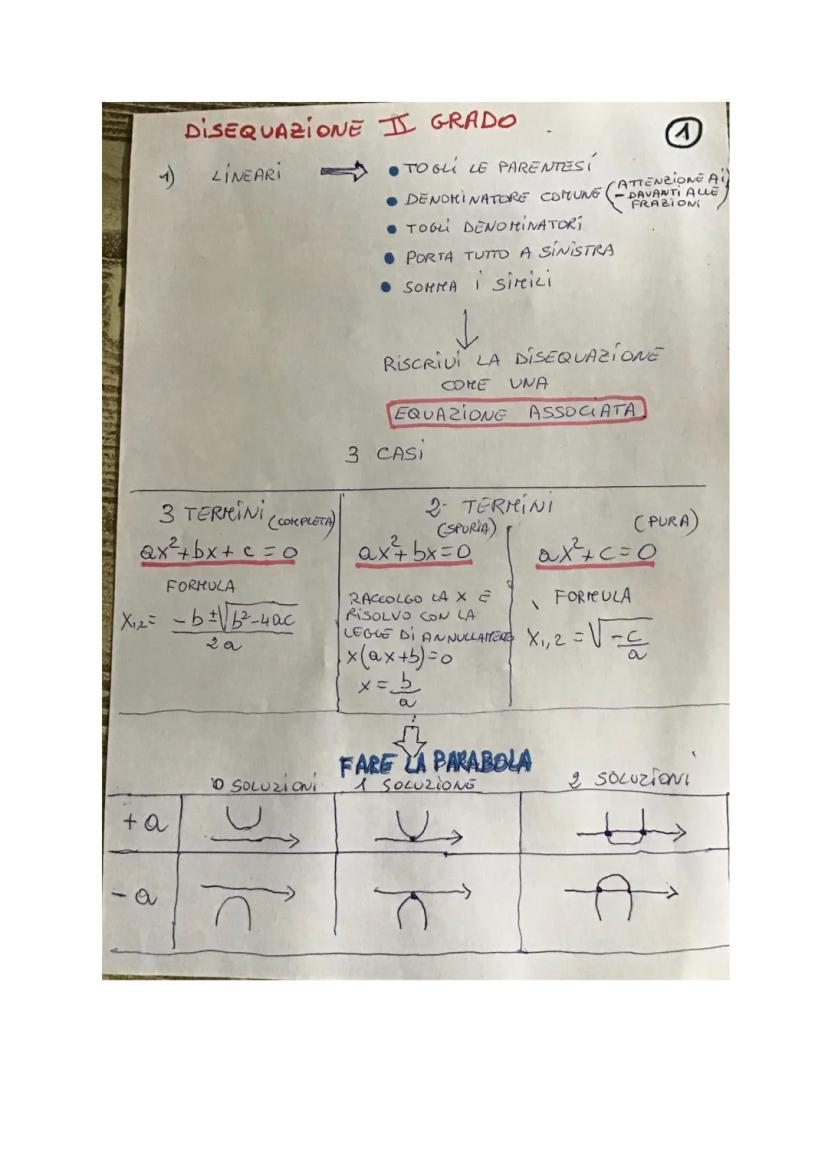 DISEQUAZIONE II GRADO
1
1) LINEARI
• TOGLI LE PARENTESI
• DENOMINATORE COMUNE (ATTENZIONE AI
- DAVANTI ALLE
FRAZIONI)
• TOGLI DENOMINATORI
• PORTA TUTTO A SINISTRA
• SOMMA I SIMILI
RISCRIVI LA DISEQUAZIONE
COME UNA
EQUAZIONE ASSOCIATA
3 CASI
3 TERMINI (COMPLETA)
ax²+bx+c=0
FORMULA
X₁,₂= -b±√b²-4ac / 2a
2 TERMINI
(SPURIA)
ax²+bx=0
RACCOLGO LA X E
RISOLVO CON LA
LEGGE DI ANNULLAMENO
x(ax+b)=0
x = b/a
(PURA)
ax²+c=0
FORMULA
X₁,₂ = √-c/a
FARE LA PARABOLA
0 SOLUZIONI 1 SOLUZIONE 2 SOLUZIONI
+a
-a